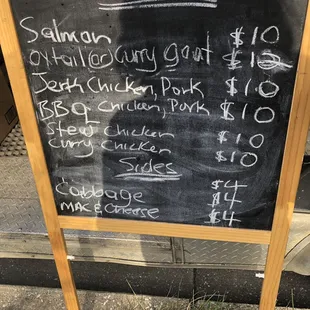 Salmon $10
Oxtail or Curry goat $1
Jerk Chicken, Pork $10
BBQ Chicken, Pork $10
Stew chicken $10
Curry Chicken $10
Sides
Cabbage $4
$4
Mac & Cheese $4